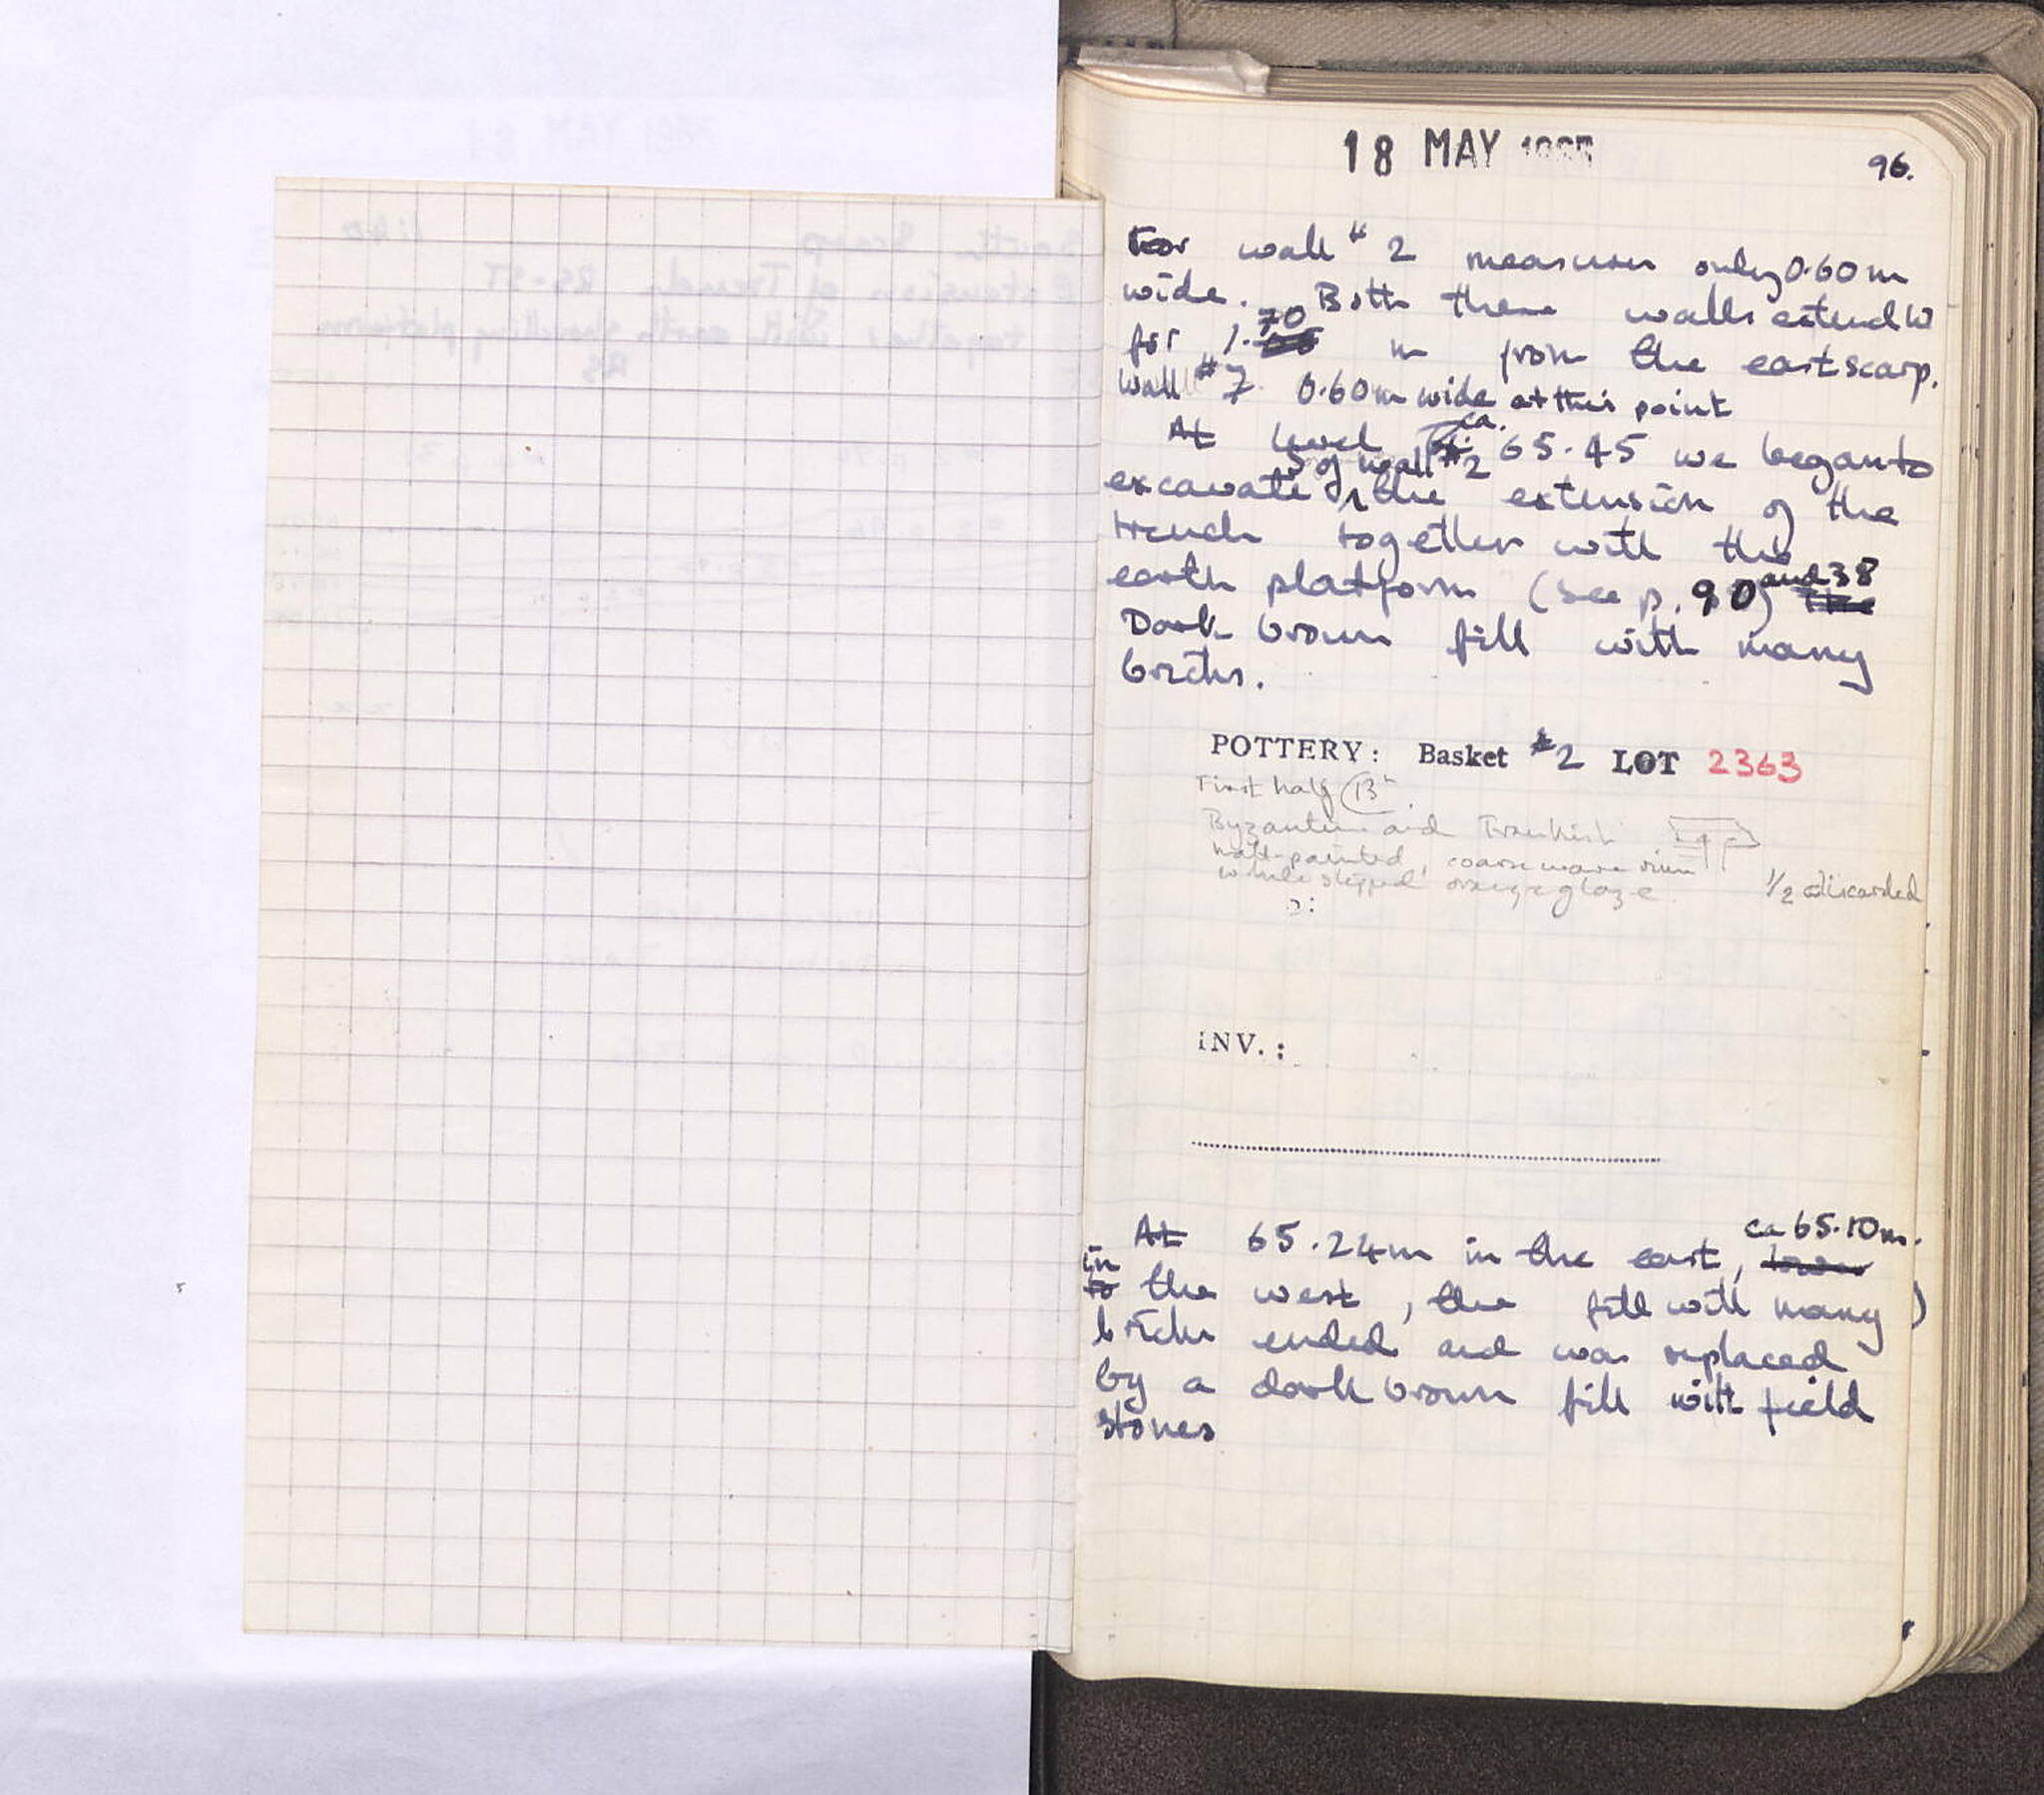 18 MAY
96.
For wall # 2 measures only 0.60 m
wide. Both these walls extend W
for 1.70 m from the east scarp.
Wall #7 0.60 m wide at this point
At level ca. 65.45 we began to
excavate S of wall #2 the extension of the
trench together with the
earth platform (see p. 90) and 38
Dark brown fill with many
bricks.
POTTERY: Basket #2 LOT 2363
First half 13th
Byzantine and Frankish
matt-painted, coarse ware rim
white slipped orange glaze
1/2 discarded
INV.:
At 65.24m in the east, ca 65.10m.
in the west, the fill with many
bricks ended and was replaced
by a dark brown fill with field
stones